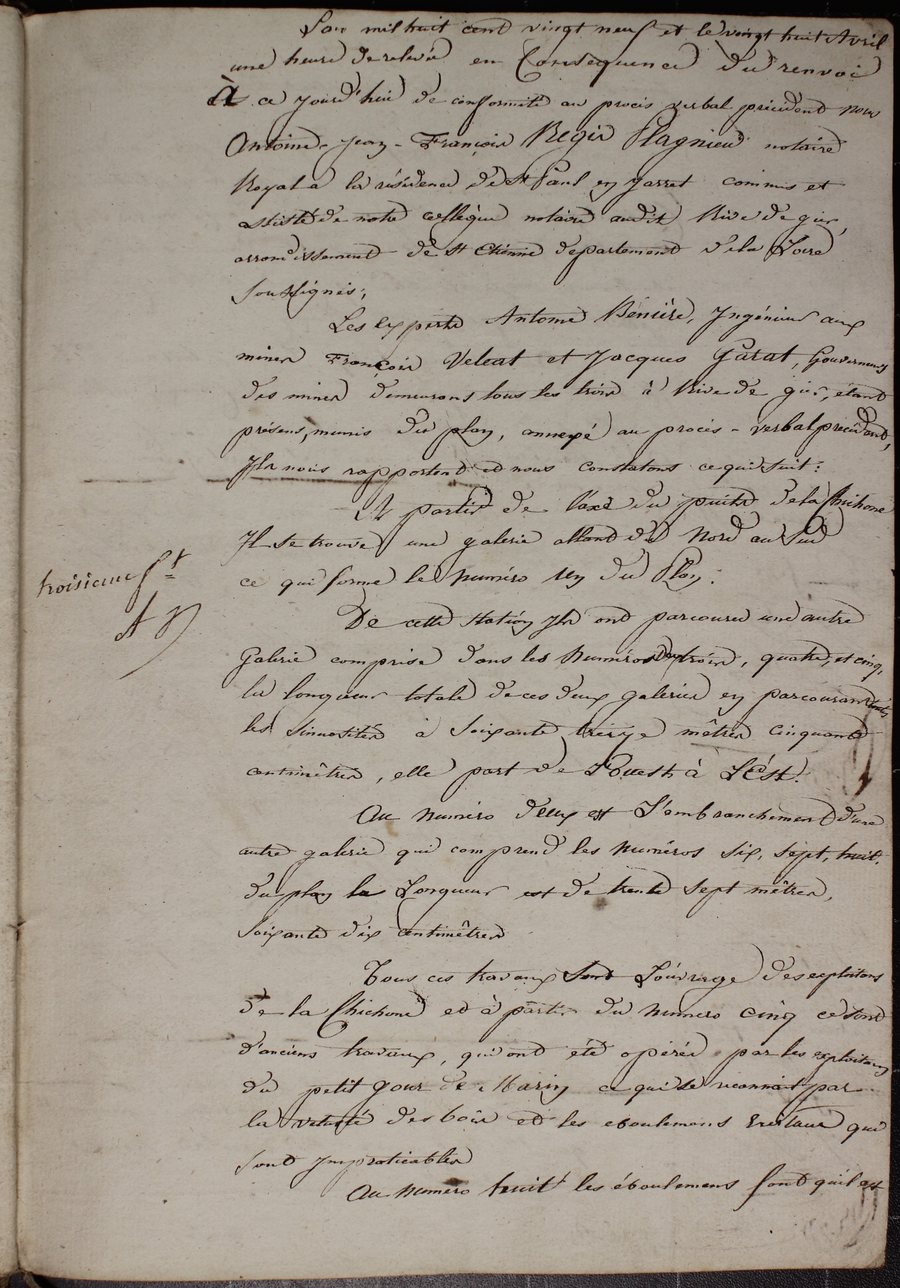 L'an mil huit cent vingt neuf et le vingt huit Avril
une heure de relevée en Consequence du renvoi
à ce jourd'hui de conformité au procès verbal précédent nous
Antoine-Jean-François Régis Plagnieu notaire
Royal à la résidence de St Paul en Jarret commis et
assisté de notre collègue notaire audit Rive de gier,
arrondissement de St Etienne departement de la Loire
soussignés;
Les experts Antoine Bénière, Ingénieur aux
mines François Velcat et Jacques Garat, Gouverneurs
des mines demeurans tous les trois à Rive de gier, étant
présens, munis du plan, annexé au procès-verbal précédent,
Ils nous rapportent et nous constatons ce qui suit:
A partir de l'axe du puits de la Chichone
Il se trouve une galerie allant du Nord au Sud
ce qui forme le numéro un du Plan.
troisieme ft
A P
De cette station Ils ont parcouru une autre
Galerie comprise dans les numéros deux trois, quatre, et cinq,
la longueur totale de ces deux galeries en parcourant toutes
les sinuosités à soixante treize mêtres cinquante
centimêtres, elle part de L'ouest à L'Ést.
Au numéro deux est L'embranchement d'une
autre galerie qui comprend les numéros six, sept, huit.
du plan la Longueur est de trente sept mêtres,
soixante dix centimêtres
Tous ces travaux sont L'ouvrage des exploitans
de la Chichone et à partir du numero cinq ce sont
d'anciens travaux, qui ont été opérés par les exploitans
du petit Gour de Marin ce qui se reconnait par
la vetusté des bois et les eboulemens existans qui
sont Impraticables
Au numéro huit les éboulemens font qu'il est